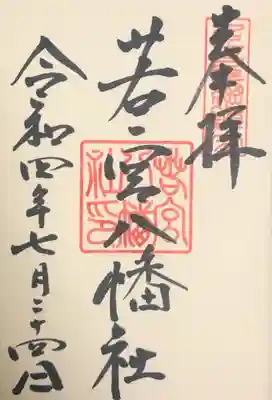 奉拝
若宮八幡社
若宮
八幡
社印
令和四年七月二十四日